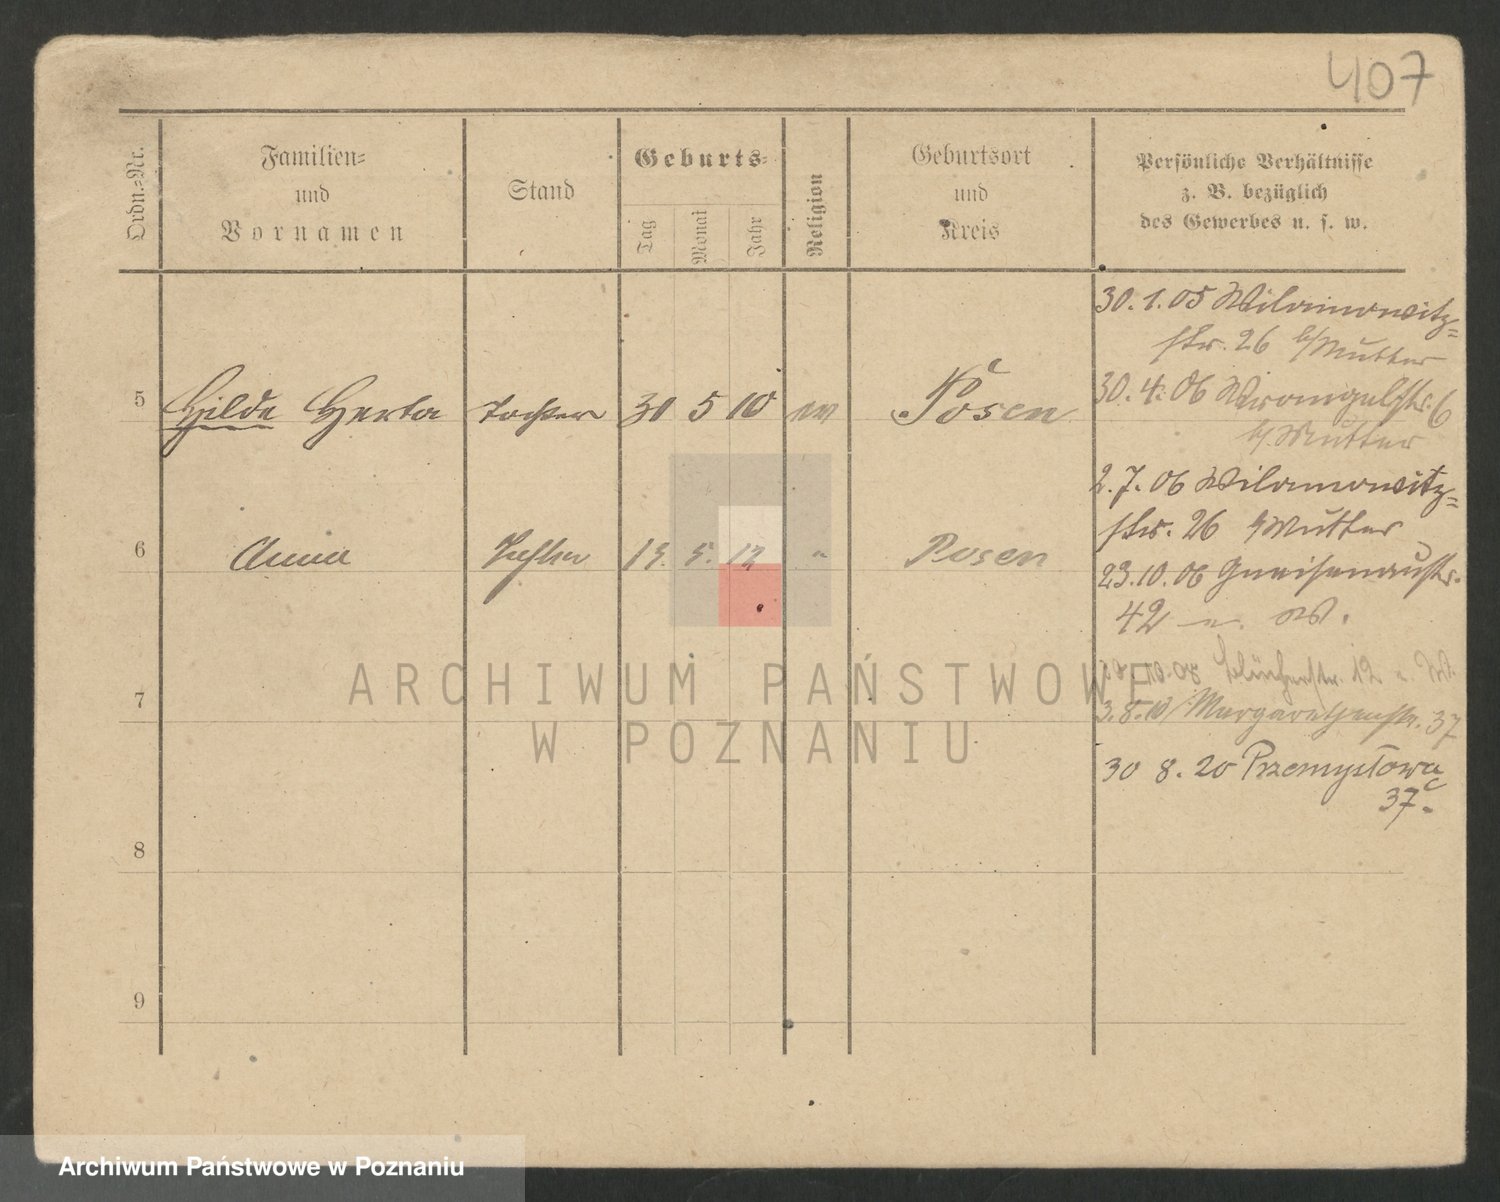 407
Ordn.-Nr.
Familien-
und
Vornamen
Stand
Geburts-
Tag
Monat
Jahr
Religion
Geburtsort
und
Kreis
Persönliche Verhältnisse
z. B. bezüglich
des Gewerbes u. s. w.
5 Hilda Herta Tochter 30 5 10 ev Posen
6 Anna Tochter 13. 5. 12 " Posen
7
8
9
30. 1. 05 Wilamowitz-
str. 26 b/Mutter
30. 4. 06 Wrangelstr. 6
b/Mutter
2. 7. 06 Wilamowitz-
str. 26 b/Mutter
23. 10. 06 Gneisenaustr.
42 W.
10. 08 Blücherstr. 12 W.
3. 8. 10 Margarethenstr. 37
30 8. 20 Przemysłowa
37 c
ARCHIWUM PAŃSTWOWE
W POZNANIU
Archiwum Państwowe w Poznaniu